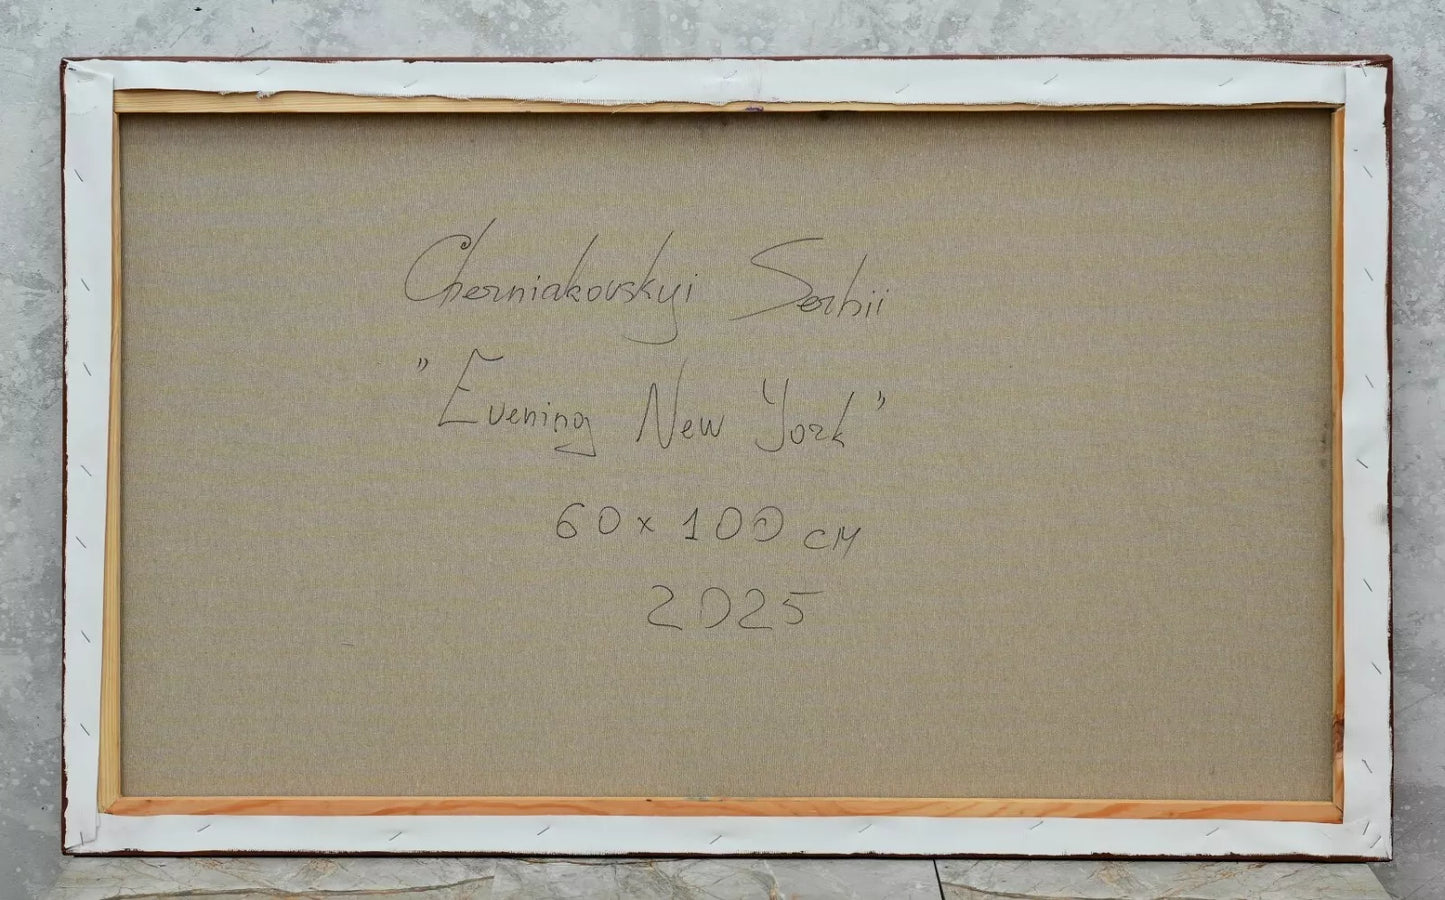 Cherniakovskyi Serhii
"Evening New York"
60x100 см
2025